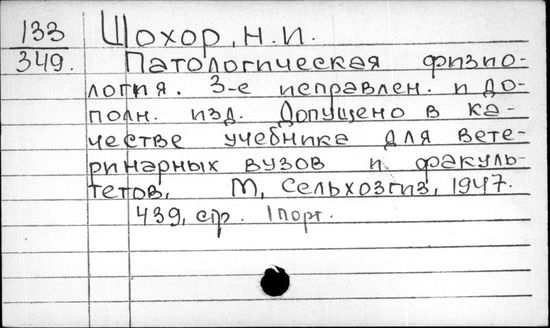 133 Шохор, Н.И.
349. Патологическая физио-
логия. 3-е исправлен. и до-
полн. изд. Допущено в ка-
честве учебника для вете-
ринарных вузов и факуль-
тетов, М, Сельхозгиз, 1947.
439, стр. 1 порт.